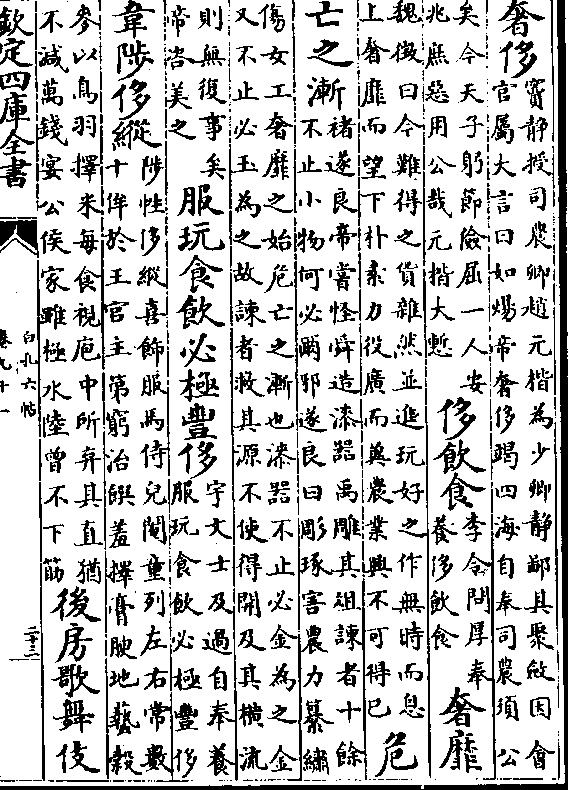 奢侈
竇靜授司農卿趙元楷為少卿靜鄙其聚斂因會
官屬大言曰如煬帝奢侈竭四海自奉司農須公
矣今天子躬節儉屈一人安
兆庶惡用公哉元楷大慙
侈飲食
李令問厚奉
養侈飲食
奢靡
魏徵曰今難得之貨雜然並進玩好之作無時而息
上奢靡而望下朴素力役廣而冀農業興不可得已
危
亡之漸
褚遂良帝嘗怪舜造漆器禹雕其俎諫者十餘
不止小物何必爾邪遂良曰彫琢害農力纂繡
傷女工奢靡之始危亡之漸也漆器不止必金為之金
又不止必玉為之故諫者救其源不使得開及其橫流
則無復事矣
帝咨美之
服玩食飲必極豐侈
宇文士及過自奉養
服玩食飲必極豐侈
韋陟侈縱
陟性侈縱喜飾服馬侍兒閹童列左右常數
十侔於王官主第窮治饌羞擇膏腴地藝穀
麥以鳥羽擇米每食視庖中所弃其直猶
不減萬錢宴公侯家雖極水陸曾不下筯
後房歌舞伎
欽定四庫全書
白孔六帖
卷九十一
二十三